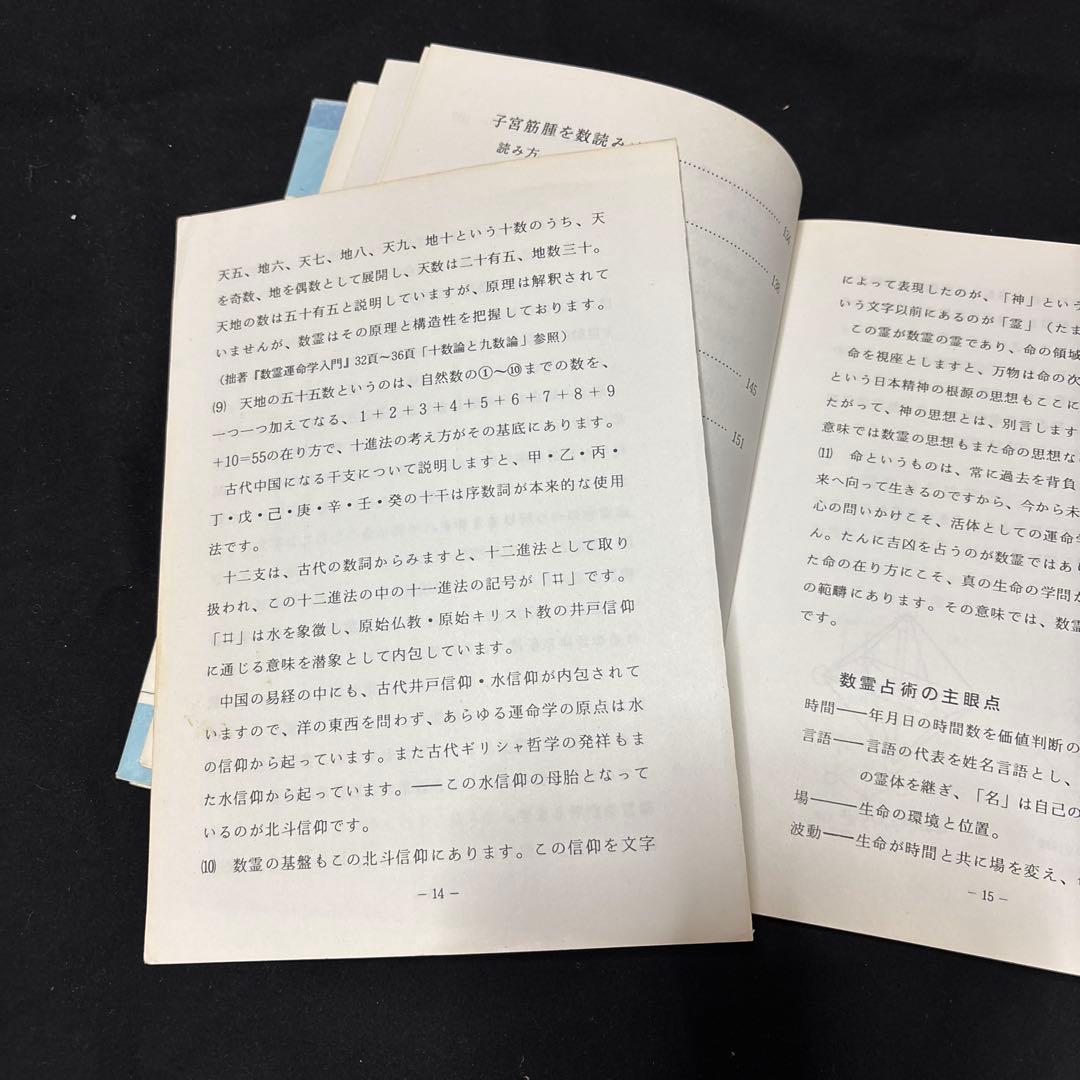 子宮筋腫を数読み
読み方
134
138
145
151
天五、地六、天七、地八、天九、地十という十数のうち、天
を奇数、地を偶数として展開し、天数は二十有五、地数三十。
天地の数は五十有五と説明していますが、原理は解釈されて
いませんが、数霊はその原理と構造性を把握しております。
(拙著『数霊運命学入門』32頁〜36頁「十数論と九数論」参照)
(9) 天地の五十五数というのは、自然数の①〜⑩までの数を、
一つ一つ加えてなる、1+2+3+4+5+6+7+8+9
+10=55の在り方で、十進法の考え方がその基底にあります。
古代中国になる干支について説明しますと、甲・乙・丙・
丁・戊・己・庚・辛・壬・癸の十干は序数詞が本来的な使用
法です。
十二支は、古代の数詞からみますと、十二進法として取り
扱われ、この十二進法の中の十一進法の記号が「井」です。
「井」は水を象徴し、原始仏教・原始キリスト教の井戸信仰
に通じる意味を潜象として内包しています。
中国の易経の中にも、古代井戸信仰・水信仰が内包されて
いますので、洋の東西を問わず、あらゆる運命学の原点は水
の信仰から起っています。また古代ギリシャ哲学の発祥もま
た水信仰から起っています。――この水信仰の母胎となって
いるのが北斗信仰です。
(10) 数霊の基盤もこの北斗信仰にあります。この信仰を文字
－14－
によって表現したのが、「神」という
いう文字以前にあるのが「霊」(たま
この霊が数霊の霊であり、命の領域
命を視座としますと、万物は命の次
という日本精神の根源の思想もここに
たがって、神の思想とは、別言します
意味では数霊の思想もまた命の思想な
(11) 命というものは、常に過去を背負
来へ向って生きるのですから、今から未
心の問いかけこそ、活体としての運命学
ん。たんに吉凶を占うのが数霊ではあり
た命の在り方にこそ、真の生命の学問が
の範疇にあります。その意味では、数霊
です。
数霊占術の主眼点
時間――年月日の時間数を価値判断の
言語――言語の代表を姓名言語とし、
の霊体を継ぎ、「名」は自己の
場――生命の環境と位置。
波動――生命が時間と共に場を変え、
－15－